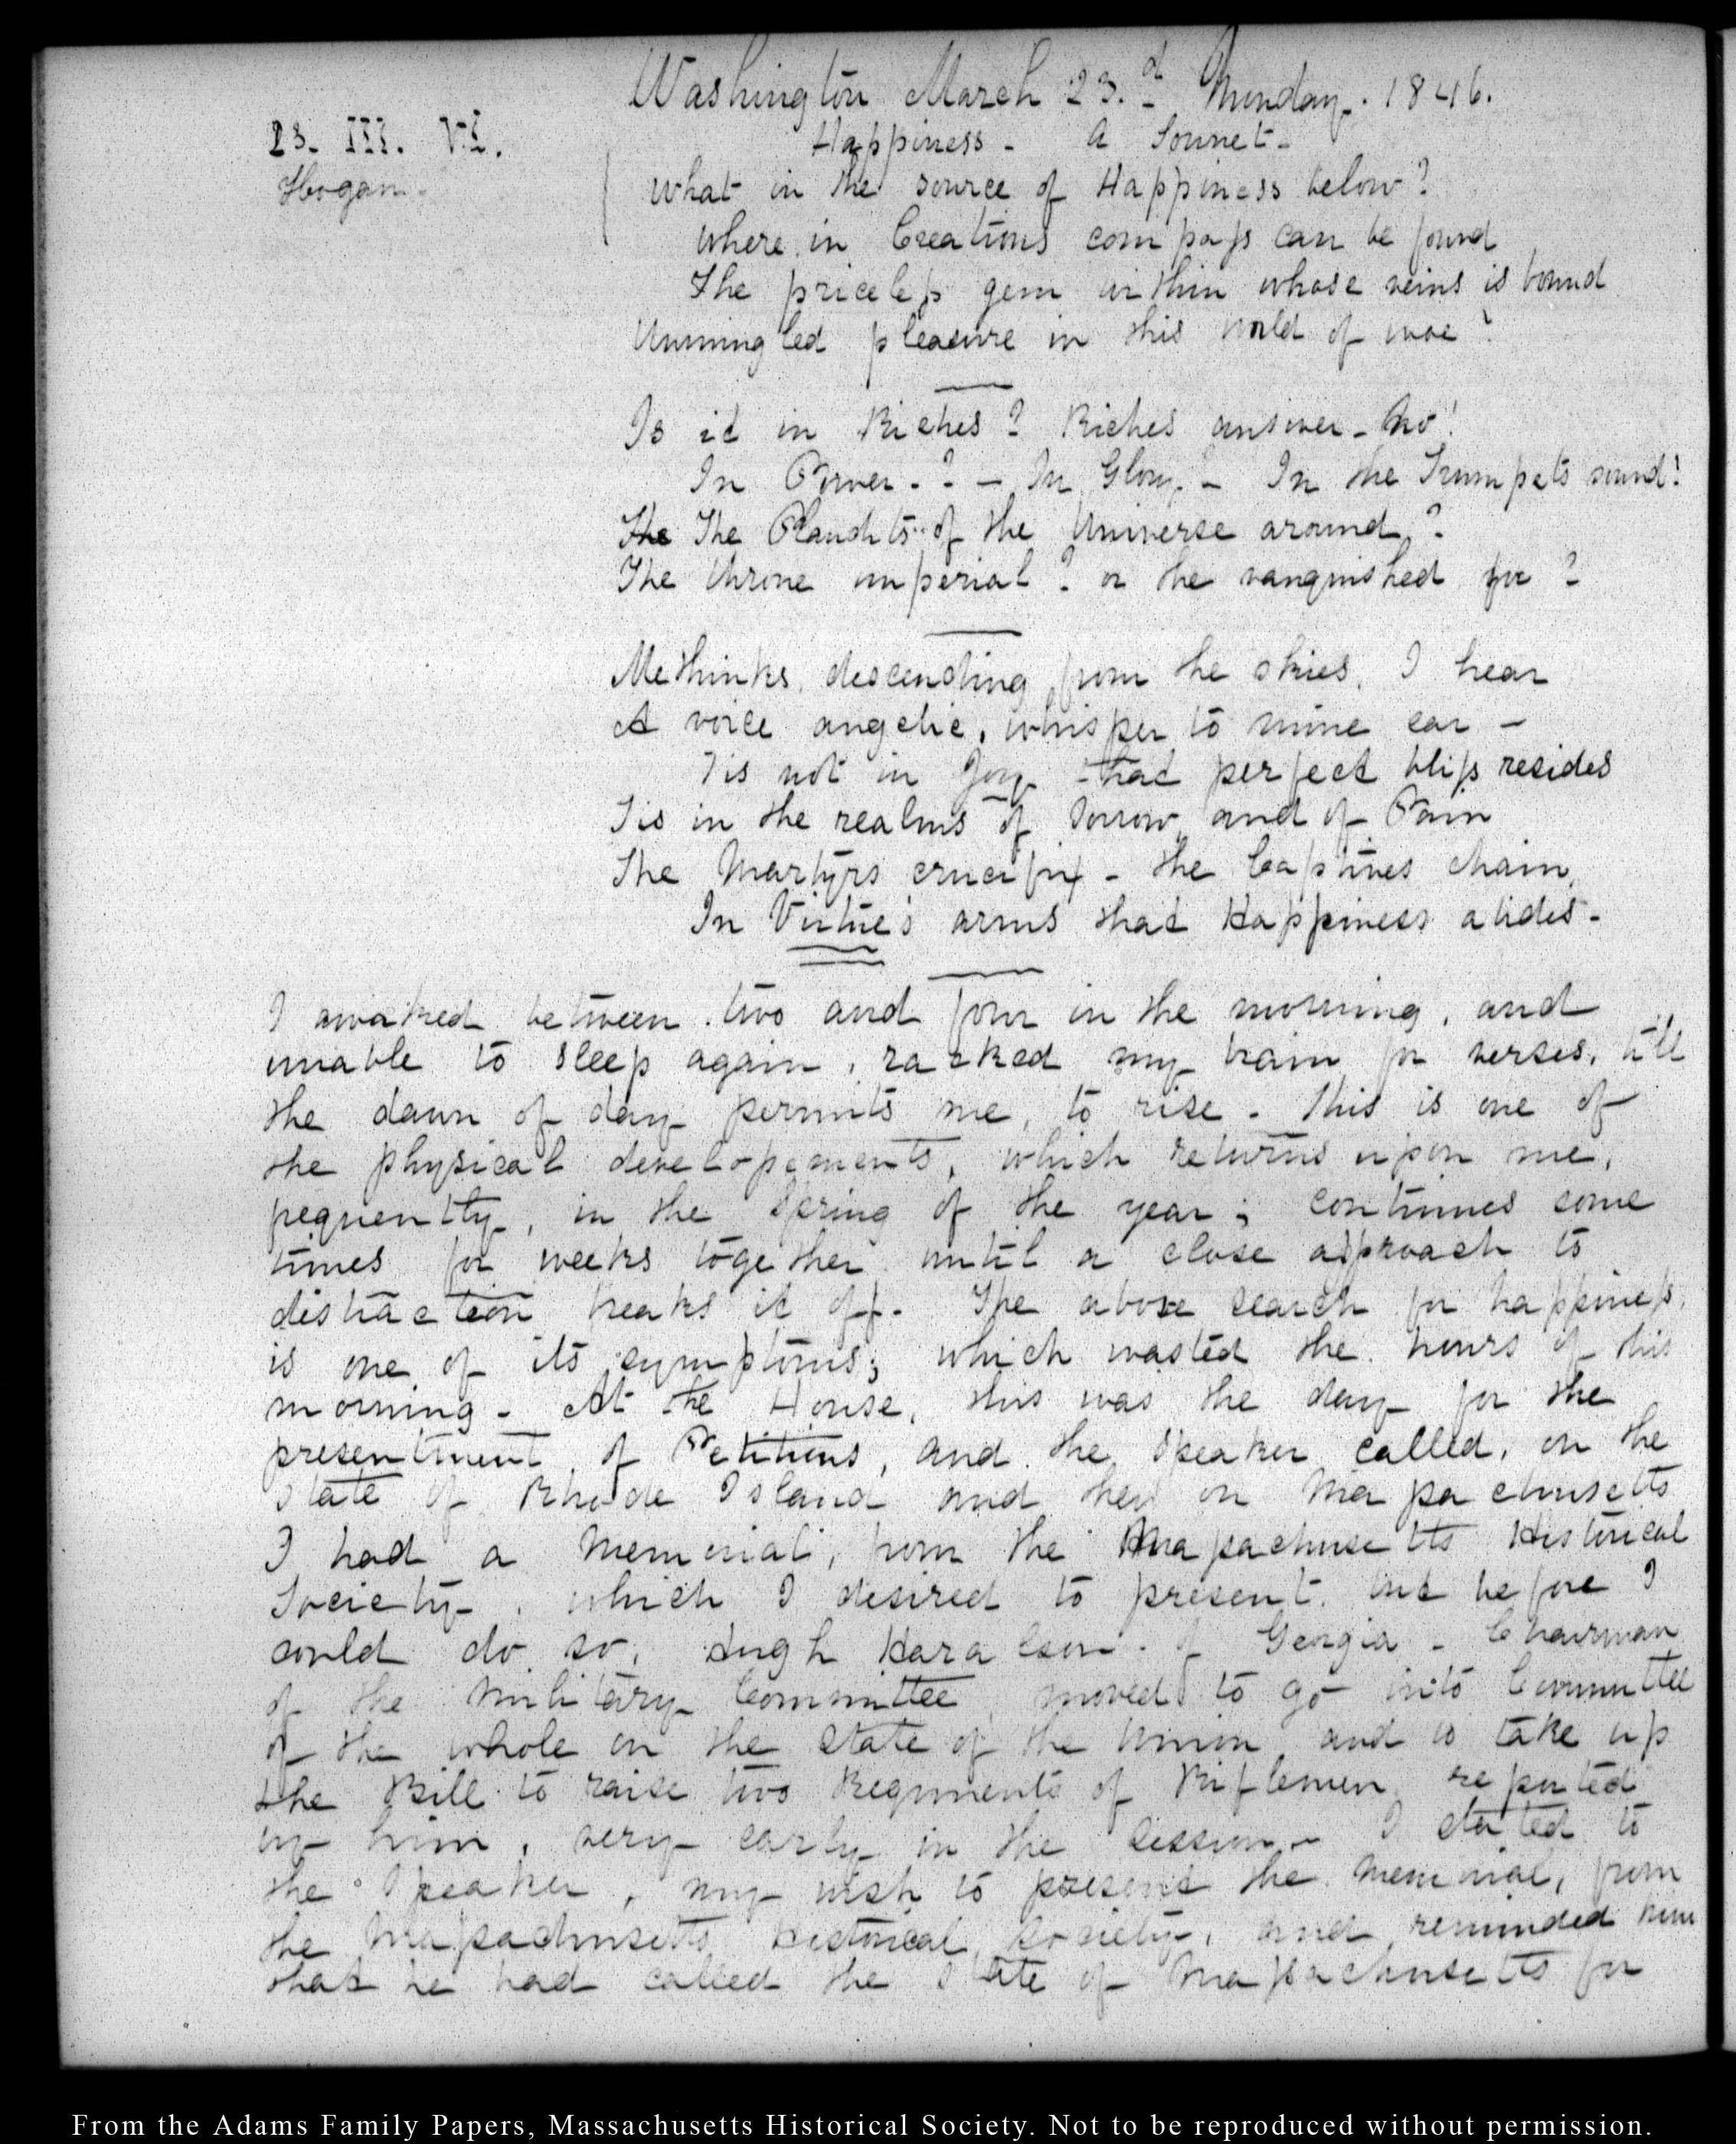 Washington March 23.d Monday. 1846.
23. III. VI.
Hogan.
Happiness - A Sonnet -
What in the source of Happiness below?
Where in Creations compass can be found
The priceless gem within whose veins is bound
Unmingled pleasure in this world of woe?
Is it in Riches? Riches answer - No!
In Power - ? - In Glory - In the Trumpets sound!
The The Plaudits of the Universe around?
The throne imperial? or the vanquished foe?
Methinks, descending from the skies, I hear
A voice angelic, whisper to mine ear -
Tis not in Joy that perfect bliss resides
Tis in the realms of Sorrow and of Pain
The Martyrs crucifix - the Captives chain,
In Virtue's arms that Happiness abides -
I awaked between two and four in the morning, and
unable to sleep again, racked my brain for verses, till
the dawn of day permits me to rise - This is one of
the physical developements, which returns upon me,
frequently, in the Spring of the year; continues some
times for weeks together until a close approach to
distraction breaks it off. The above search for happiness,
is one of its symptoms; which wasted the hours of this
morning - At the House, this was the day for the
presentment of Petitions, and the Speaker called, on the
State of Rhode Island and then on Massachusetts
I had a Memorial, from the Massachusetts Historical
Society, which I desired to present, but before I
could do so, Hugh Haralson of Georgia - Chairman
of the Military Committee, moved to go into Committee
of the whole on the state of the Union and to take up
the Bill to raise two Regiments of Riflemen, reported
by him, very early in the session - I stated to
the Speaker, my wish to present the Memorial, from
the Massachusetts Historical Society, and reminded him
that he had called the State of Massachusetts for
From the Adams Family Papers, Massachusetts Historical Society. Not to be reproduced without permission.